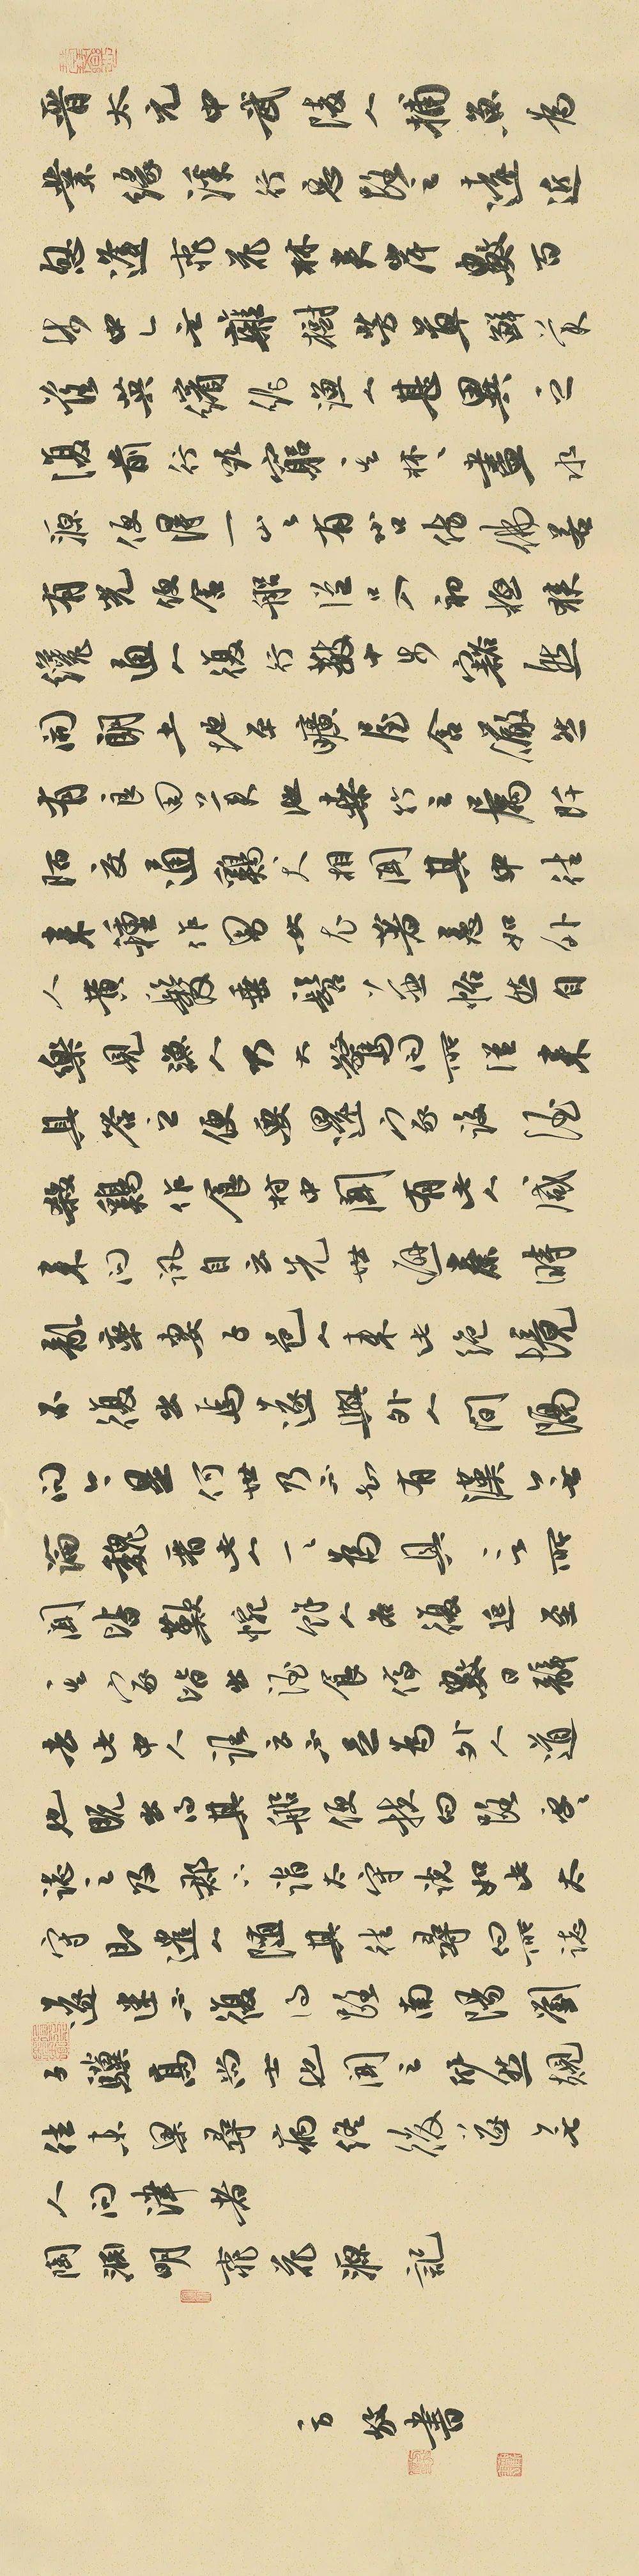 晉太元中武陵人捕魚為
業緣溪行忘路之遠近
忽逢桃花林夾岸數百
步中無雜樹芳草鮮美
落英繽紛漁人甚異之
復前行欲窮其林林盡水
源便得一山山有小口彷彿若
有光便舍船從口入初極狹
纔通人復行數十步豁然
開朗土地平曠屋舍儼然
有良田美池桑竹之屬阡
陌交通鷄犬相聞其中往
來種作男女衣著悉如外
人黃髮垂髫並怡然自
樂見漁人乃大驚問所從來
具答之便要還家設酒
殺鷄作食村中聞有此人咸
來問訊自云先世避秦時
亂率妻子邑人來此絕境
不復出焉遂與外人間隔
問今是何世乃不知有漢無
論魏晉此人一一為具言所
聞皆歎惋餘人各復延至
其家皆出酒食停數日辭
去此中人語云不足為外人道
也既出得其船便扶向路處處
誌之及郡下詣太守說如此太
守即遣人隨其往尋向所誌
遂迷不復得路南陽劉
子驥高尚士也聞之欣然規
往未果尋病終後遂無
人問津者
陶淵明桃花源記
書